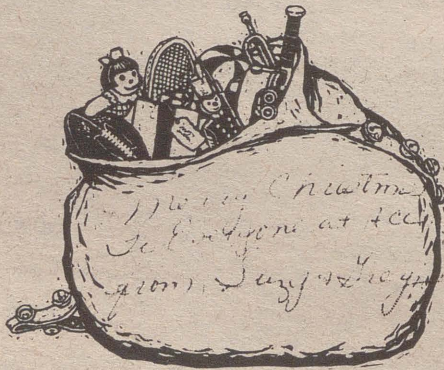 Merry Christmas
To Everyone at
from Suzy &